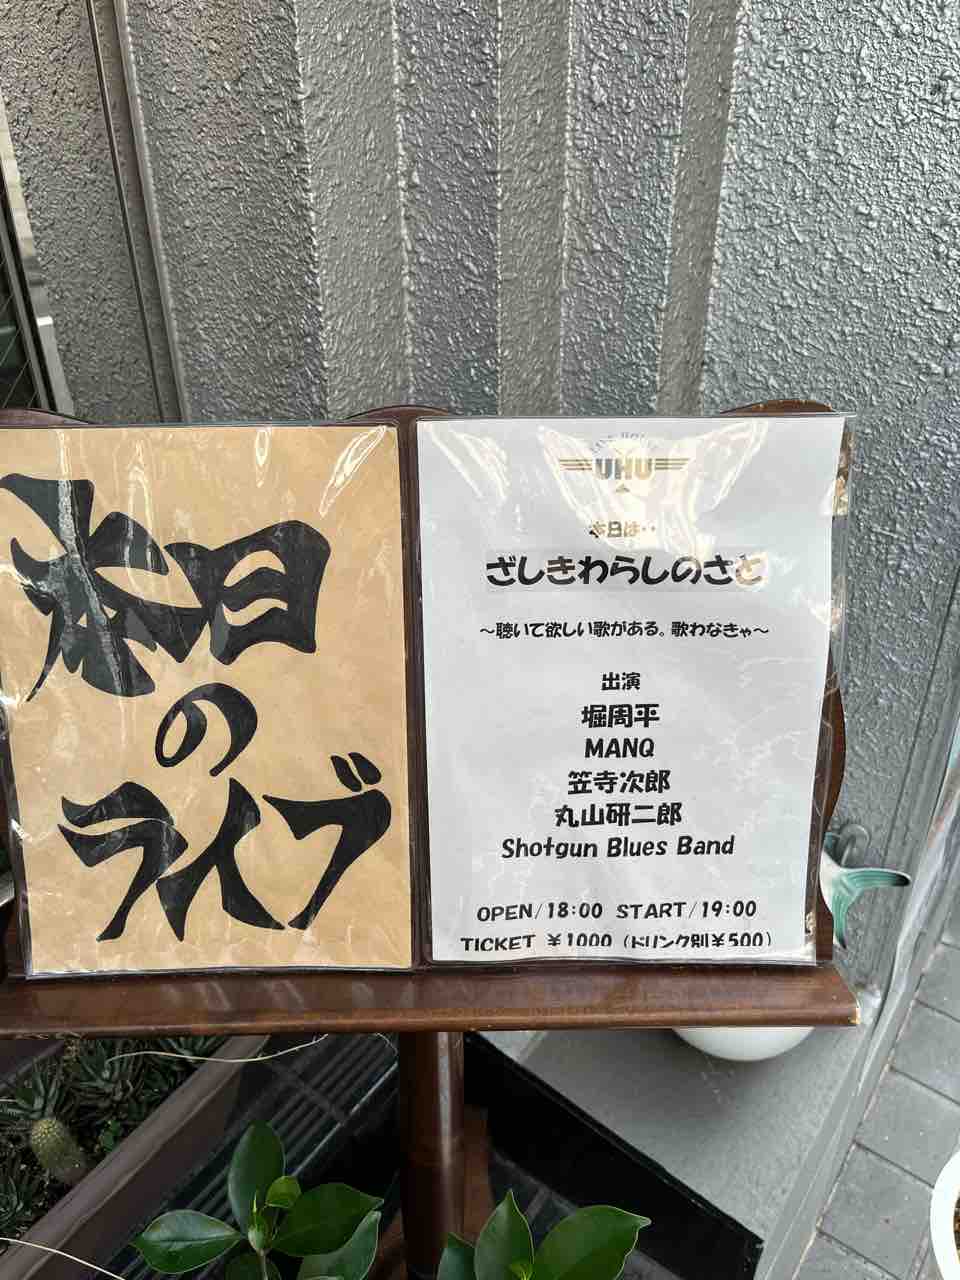 本日
の
ライブ
LIVE HOUSE
UHU
本日は・・
ざしきわらしのさと
～聴いて欲しい歌がある。歌わなきゃ～
出演
堀周平
MANQ
笠寺次郎
丸山研二郎
Shotgun Blues Band
OPEN/18:00 START/19:00
TICKET ￥1000（ドリンク別￥500）